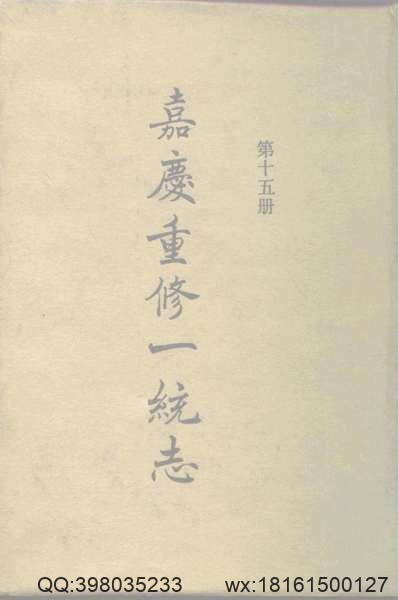 第十五册
嘉慶重修一統志
QQ:398035233 wx:18161500127